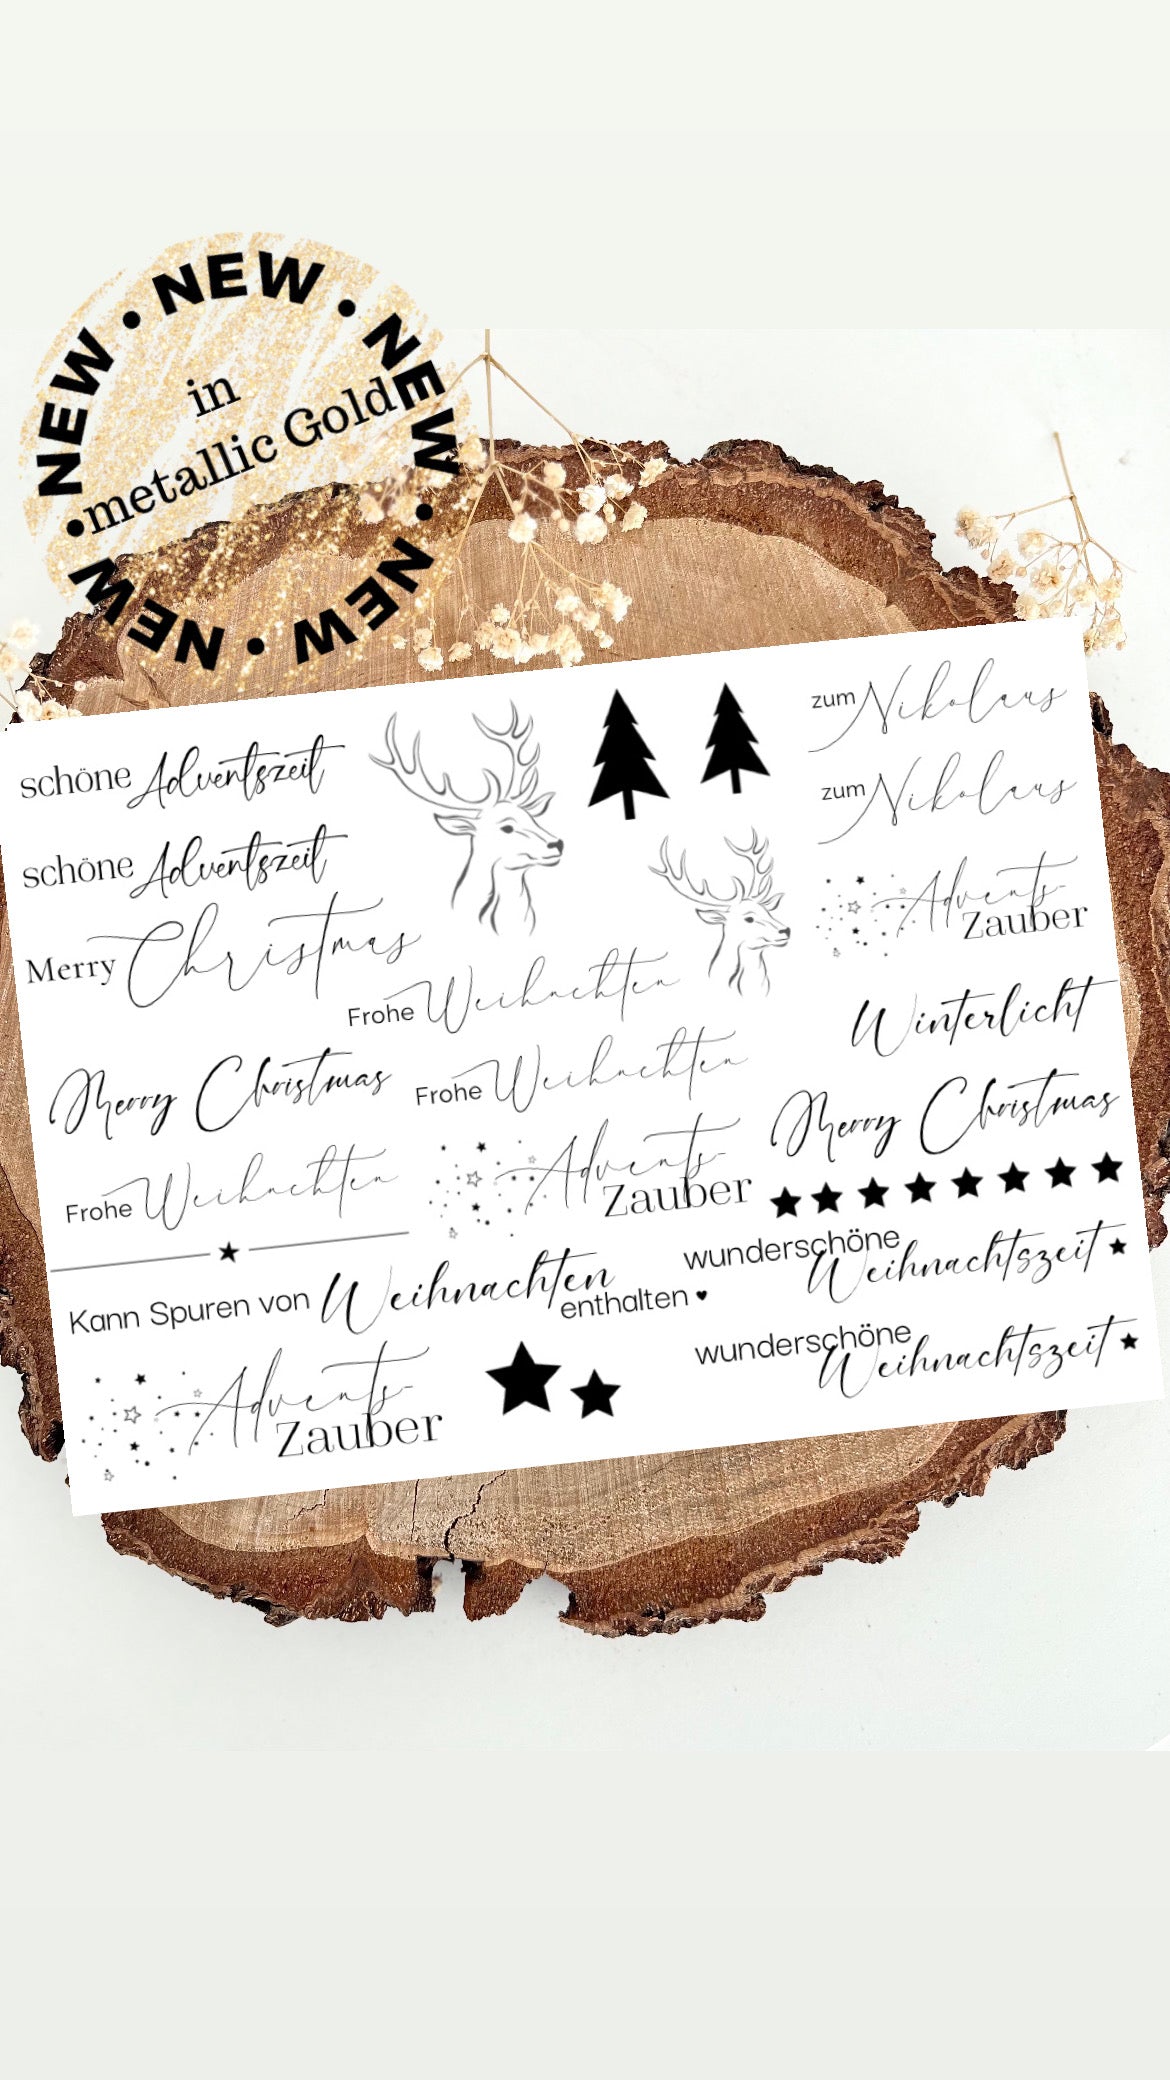 NEW • NEW • NEW • NEW • NEW • NEW •
in
metallic Gold
schöne Adventszeit
schöne Adventszeit
Merry Christmas
Merry Christmas
Frohe Weihnachten
Frohe Weihnachten
Frohe Weihnachten
zum Nikolaus
zum Nikolaus
Advents-
Zauber
Winterlicht
Merry Christmas
Advents-
Zauber
wunderschöne
Weihnachtszeit
wunderschöne
Weihnachtszeit
Kann Spuren von Weihnachten
enthalten ♥
Advents-
Zauber